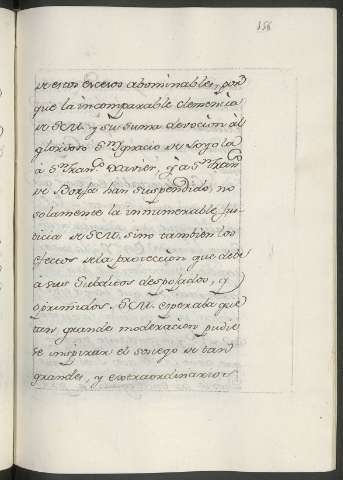 356
de estos excesos abominables, por
que la incomparable clemencia
de S.M. y su suma devocion al
glorioso Sn. Ignacio de Loyola
à Sn. Franco. Xavier, y à Sn. Franco.
de Borja han suspendido, no
solamente la innumerable Jus
ticia de S.M. sino tambien los
efectos de la proteccion que debe
à sus Subditos despojados, y
oprimidos. S.M. esperaba que
tan grande moderacion pudie
se inspirar el sosiego de tan
grandes, y extraordinarios